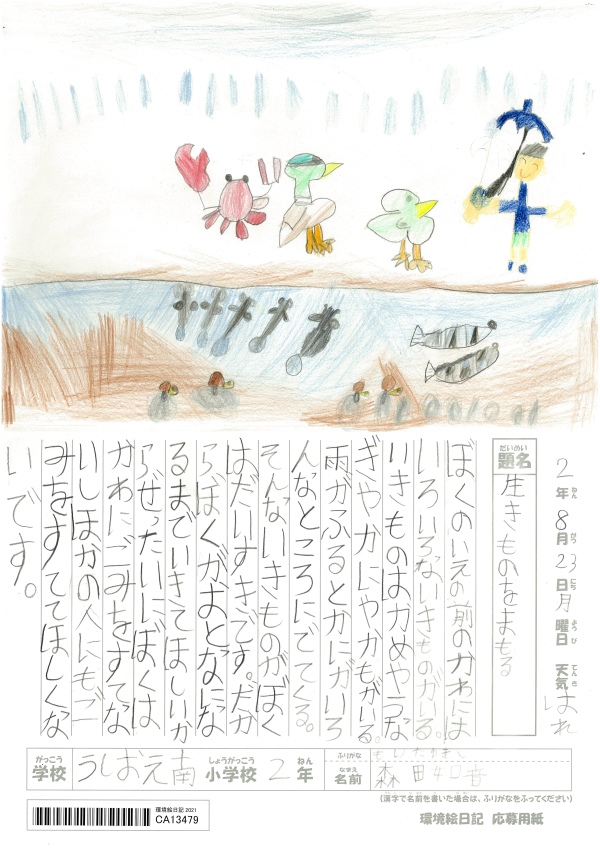 2年8月23日月曜日 天気はれ
ねん がつ にち ようび てんき
だいめい
題名
生きものをまもる
ぼくのいえの前のかわには
いろいろないきものがいる。
いきものはかめやうな
ぎやかにやかもがいる。
雨がふるとかにがいろ
んなところにでてくる。
そんないきものがぼく
はだいすきです。だか
らぼくがおとなにな
るまでいきてほしいか
らぜったいにぼくは
かわにごみをすてな
いしほかの人にもご
みをすててほしくな
いです。
がっこう
学校
うしおえ南
しょうがっこう
小学校
2年
ねん
ふりがな
なまえ
名前
森田
(漢字で名前を書いた場合は、ふりがなをふってください)
環境絵日記 2021
CA13479
環境絵日記 応募用紙